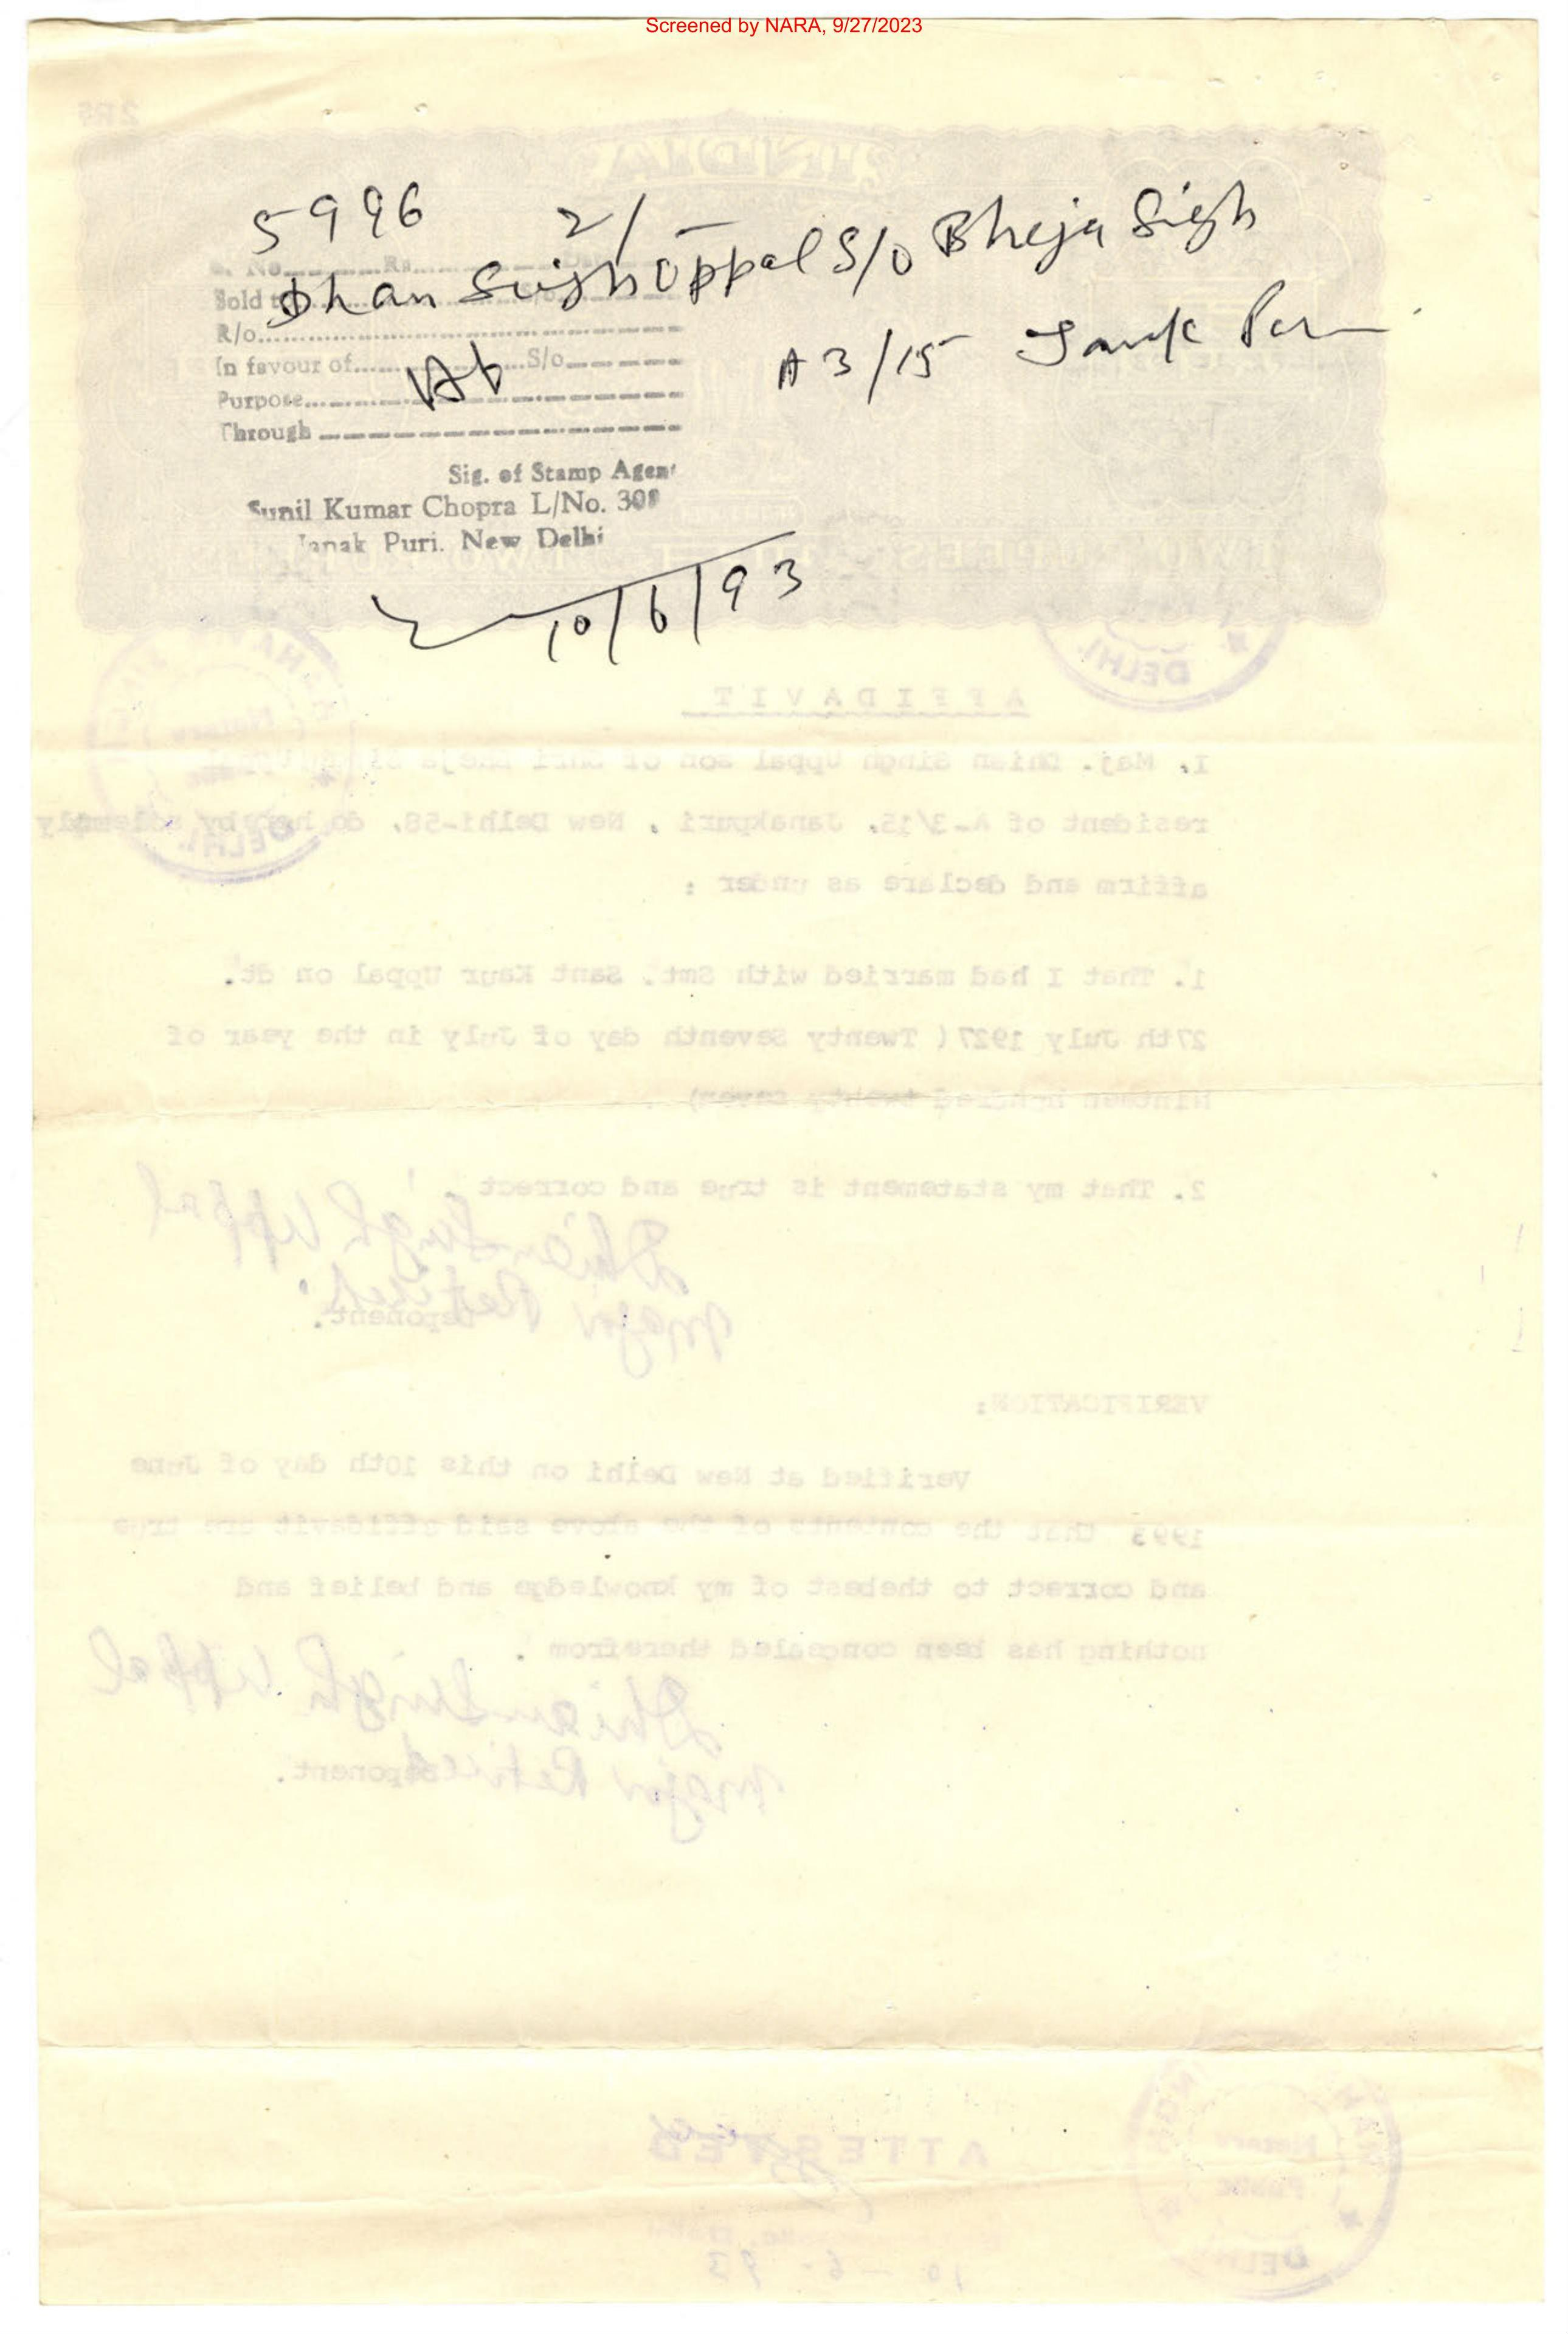 Screened by NARA, 9/27/2023
5996 2/-
S. No. Rs.
Dhan Singh Uppal S/o Bheja Sigh
Sold to
R/o
A3/15 Janak Puri
In favour of S/o
Purpose
Through
Sig. of Stamp Agent
Sunil Kumar Chopra L/No. 308
Janak Puri. New Delhi
10/6/93
AFFIDAVIT
I, Maj. Dhian Singh Uppal son of Shri Bheja
resident of A-3/15, Janakpuri , New Delhi-58, do hereby solemnly
affirm and declare as under :
1. That I had married with Smt. Sant Kaur Uppal on dt.
27th July 1927( Twenty Seventh day of July in the year of
Ninteen hundred twenty seven)
2. That my statement is true and correct
Dhian Singh Uppal
Major Retired
Deponent.
VERIFICATION:
Verified at New Delhi on this 10th day of June
1993 that the contents of the above said affidavit are true
and correct to thebest of my knowledge and belief and
nothing has been concealed therefrom .
Dhian Singh Uppal
Major Retired
Deponent.
ATTESTED
Notary
Public
DELHI
10-6-93